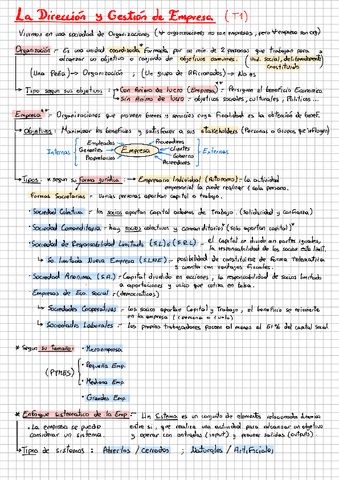 La Dirección y Gestión de Empresa (T1)
Vivimos en una sociedad de Organizaciones (∀ organizaciones no son empresas, pero ∀ empresa son org)
Organización → Es una unidad coordinada formada por un min de 2 personas que trabajan para
alcanzar un objetivo o conjunto de objetivos comunes. (Und. social, deliberadamente constituida)
(Una Peña) → Organización ; (Un grupo de Aficionados) → No es
↳ Tipo según sus objetivos:
Con Ánimo de lucro (Empresa) - Persiguen el beneficio Económico
Sin Ánimo de lucro - objetivos sociales, culturales, Políticos...
Empresa → Organizaciones que proveen bienes y servicios cuya finalidad es la obtención de benef.
↳ Objetivos: Maximizar los beneficios y satisfacer a sus stakeholders (Personas o Grupos que influyen)
Internas
Empleados
Gerentes
Propietarios
Empresa
Proveedores
Clientes
Gobierno
Acreedores
Externas
↳ Tipos: * según su Forma jurídica: → Empresario Individual (Autónomo): la actividad
empresarial la puede realizar 1 sola persona.
Formas Societarias - Varias personas aportan capital o trabajo.
• Sociedad Colectiva: los socios aportan Capital además de Trabajo (solidaridad y confianza)
• Sociedad Comanditaria - hay socios colectivos y comanditarios (solo aportan capital)
• Sociedad de Responsabilidad Limitada (SL) o (S.R.L) - el capital se divide en partes iguales,
la responsabilidad de los socios está limit.
↳ So. Limitada Nueva Empresa (SLNE) - posibilidad de constituirse de forma telemática
y cuenta con ventajas fiscales.
• Sociedad Anónima (S.A.) - Capital dividido en acciones, la responsabilidad de socios limitada
a aportaciones y único que cotiza en bolsa.
Empresas de Eco. social - (democráticas)
↳ Sociedades Cooperativas - los socios aportan Capital y Trabajo, el beneficio se reinvierte
en la empresa (1 persona = 1 voto)
↳ Sociedades Laborales - los propios trabajadores poseen al menos el 51% del capital social.
* Según su tamaño:
(PYMES)
• Microempresa
• Pequeña Emp.
• Mediana Emp.
• Grandes Emp.
* Enfoque sistemático de la Emp.: - Un Sistema es un conjunto de elementos relacionados dinámica
• La empresa se puede considerar un sistema.
entre sí, que realiza una actividad para alcanzar un objetivo
y operar con entradas (input) y proveer salidas (outputs)
↳ Tipos de sistemas: Abiertos / Cerrados ; Naturales / Artificiales